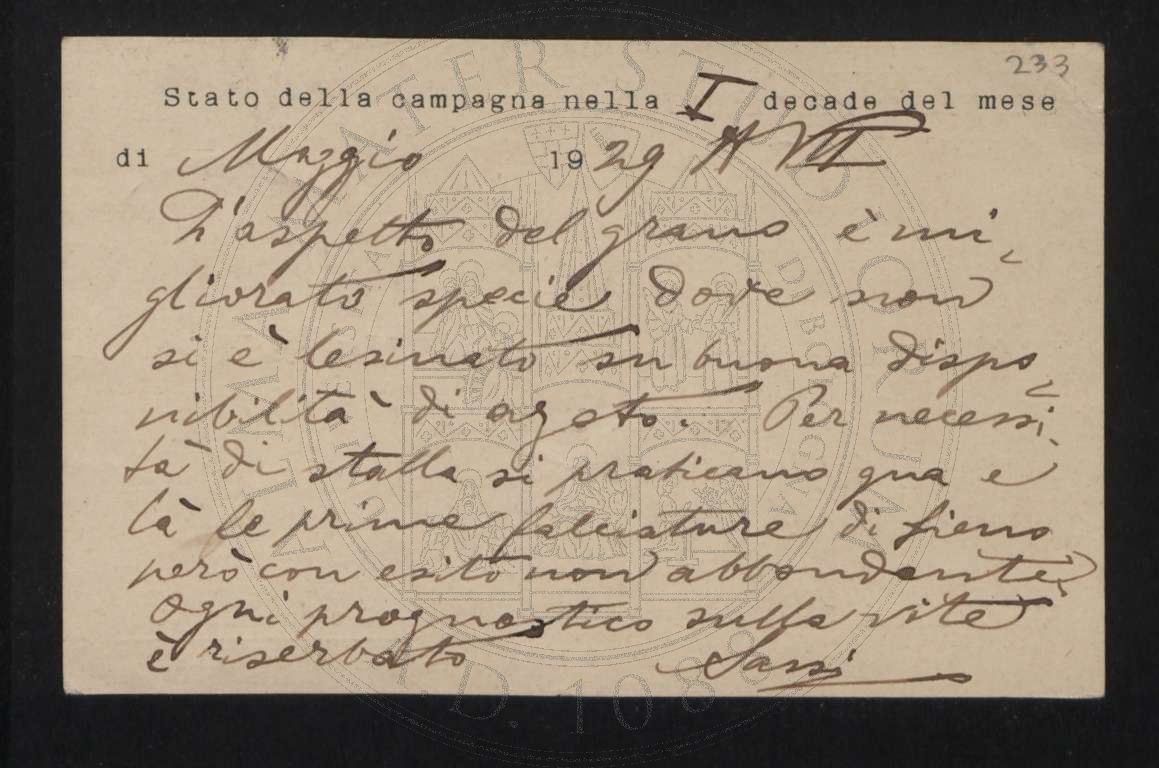 233
Stato della campagna nella I decade del mese
di Maggio 1929 A VII
L'aspetto del grano è mi-
gliorato specie dove non
si è lesinato su buona dispo-
nibilità di azoto. Per necessi-
tà di stalla si praticano qua e
là le prime falciature di fieno
però con esito non abbondante
Ogni prognostico sulla vite
è riserbato Sassi
ALMA MATER STUDIORUM
A.D. 1088